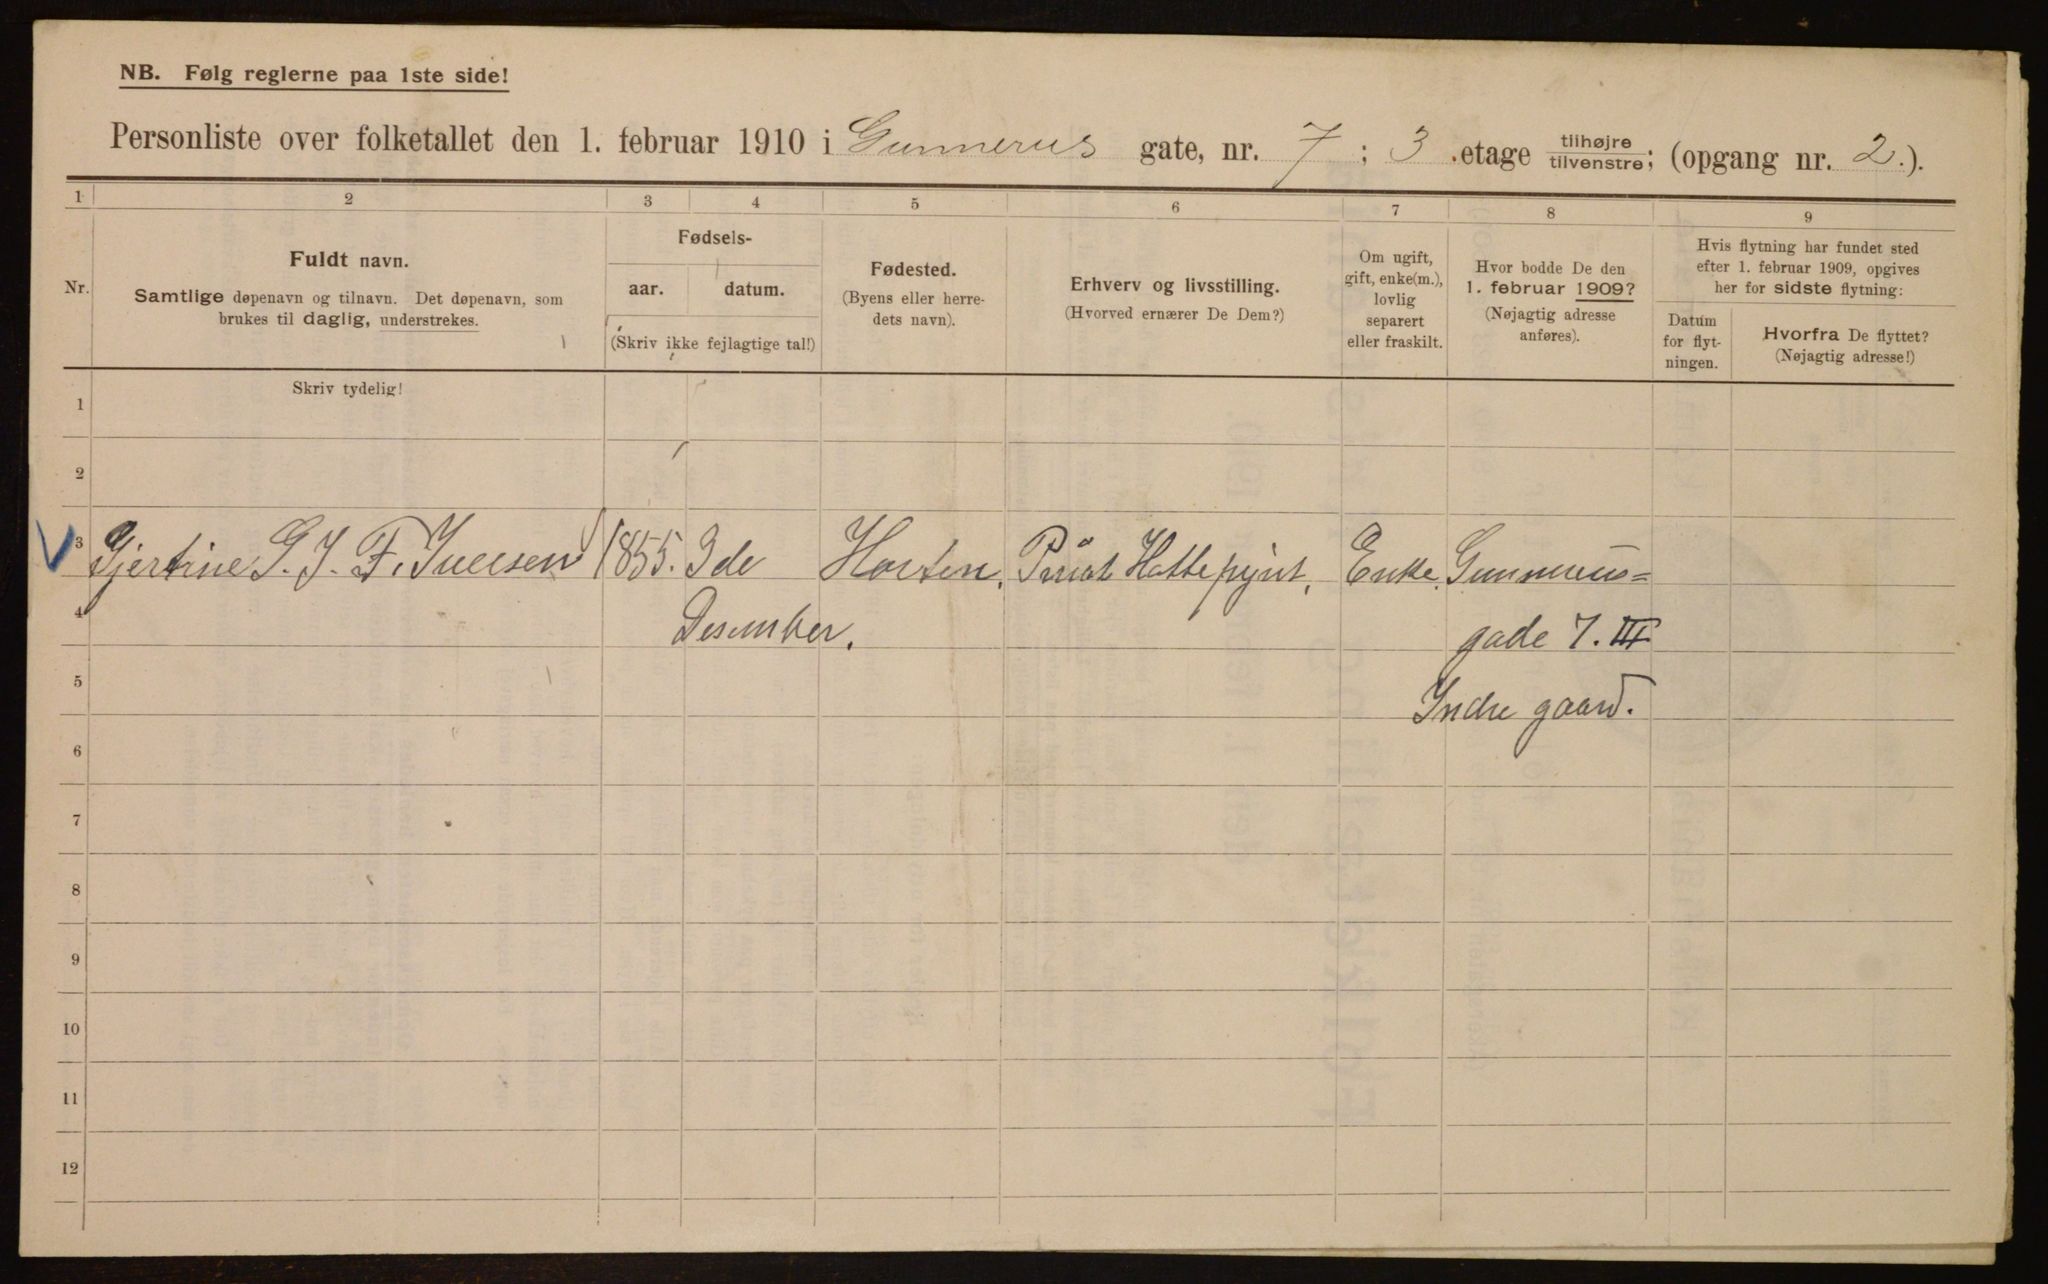 NB. Følg reglerne paa 1ste side!
Personliste over folketallet den 1. februar 1910 i Gunnerus gate, nr. 7 ; 3 .etage tilhøjre/tilvenstre; (opgang nr. 2.).
1 2 3 4 5 6 7 8 9
Nr.
Fuldt navn.
Samtlige døpenavn og tilnavn. Det døpenavn, som
brukes til daglig, understrekes.
Skriv tydelig!
Fødsels-
aar. datum.
(Skriv ikke fejlagtige tal!)
Fødested.
(Byens eller herre-
dets navn).
Erhverv og livsstilling.
(Hvorved ernærer De Dem?)
Om ugift,
gift, enke(m.),
lovlig
separert
eller fraskilt.
Hvor bodde De den
1. februar 1909?
(Nøjagtig adresse
anføres).
Hvis flytning har fundet sted
efter 1. februar 1909, opgives
her for sidste flytning:
Datum
for flyt-
ningen.
Hvorfra De flyttet?
(Nøjagtig adresse!)
1
2
3 Gjertine G. J. F. Iversen 1855. 3de Horten. Privat Hattepynt. Enke. Gunnerus=
4 Desember. gade 7. III
5 Indre gaard.
6
7
8
9
10
11
12